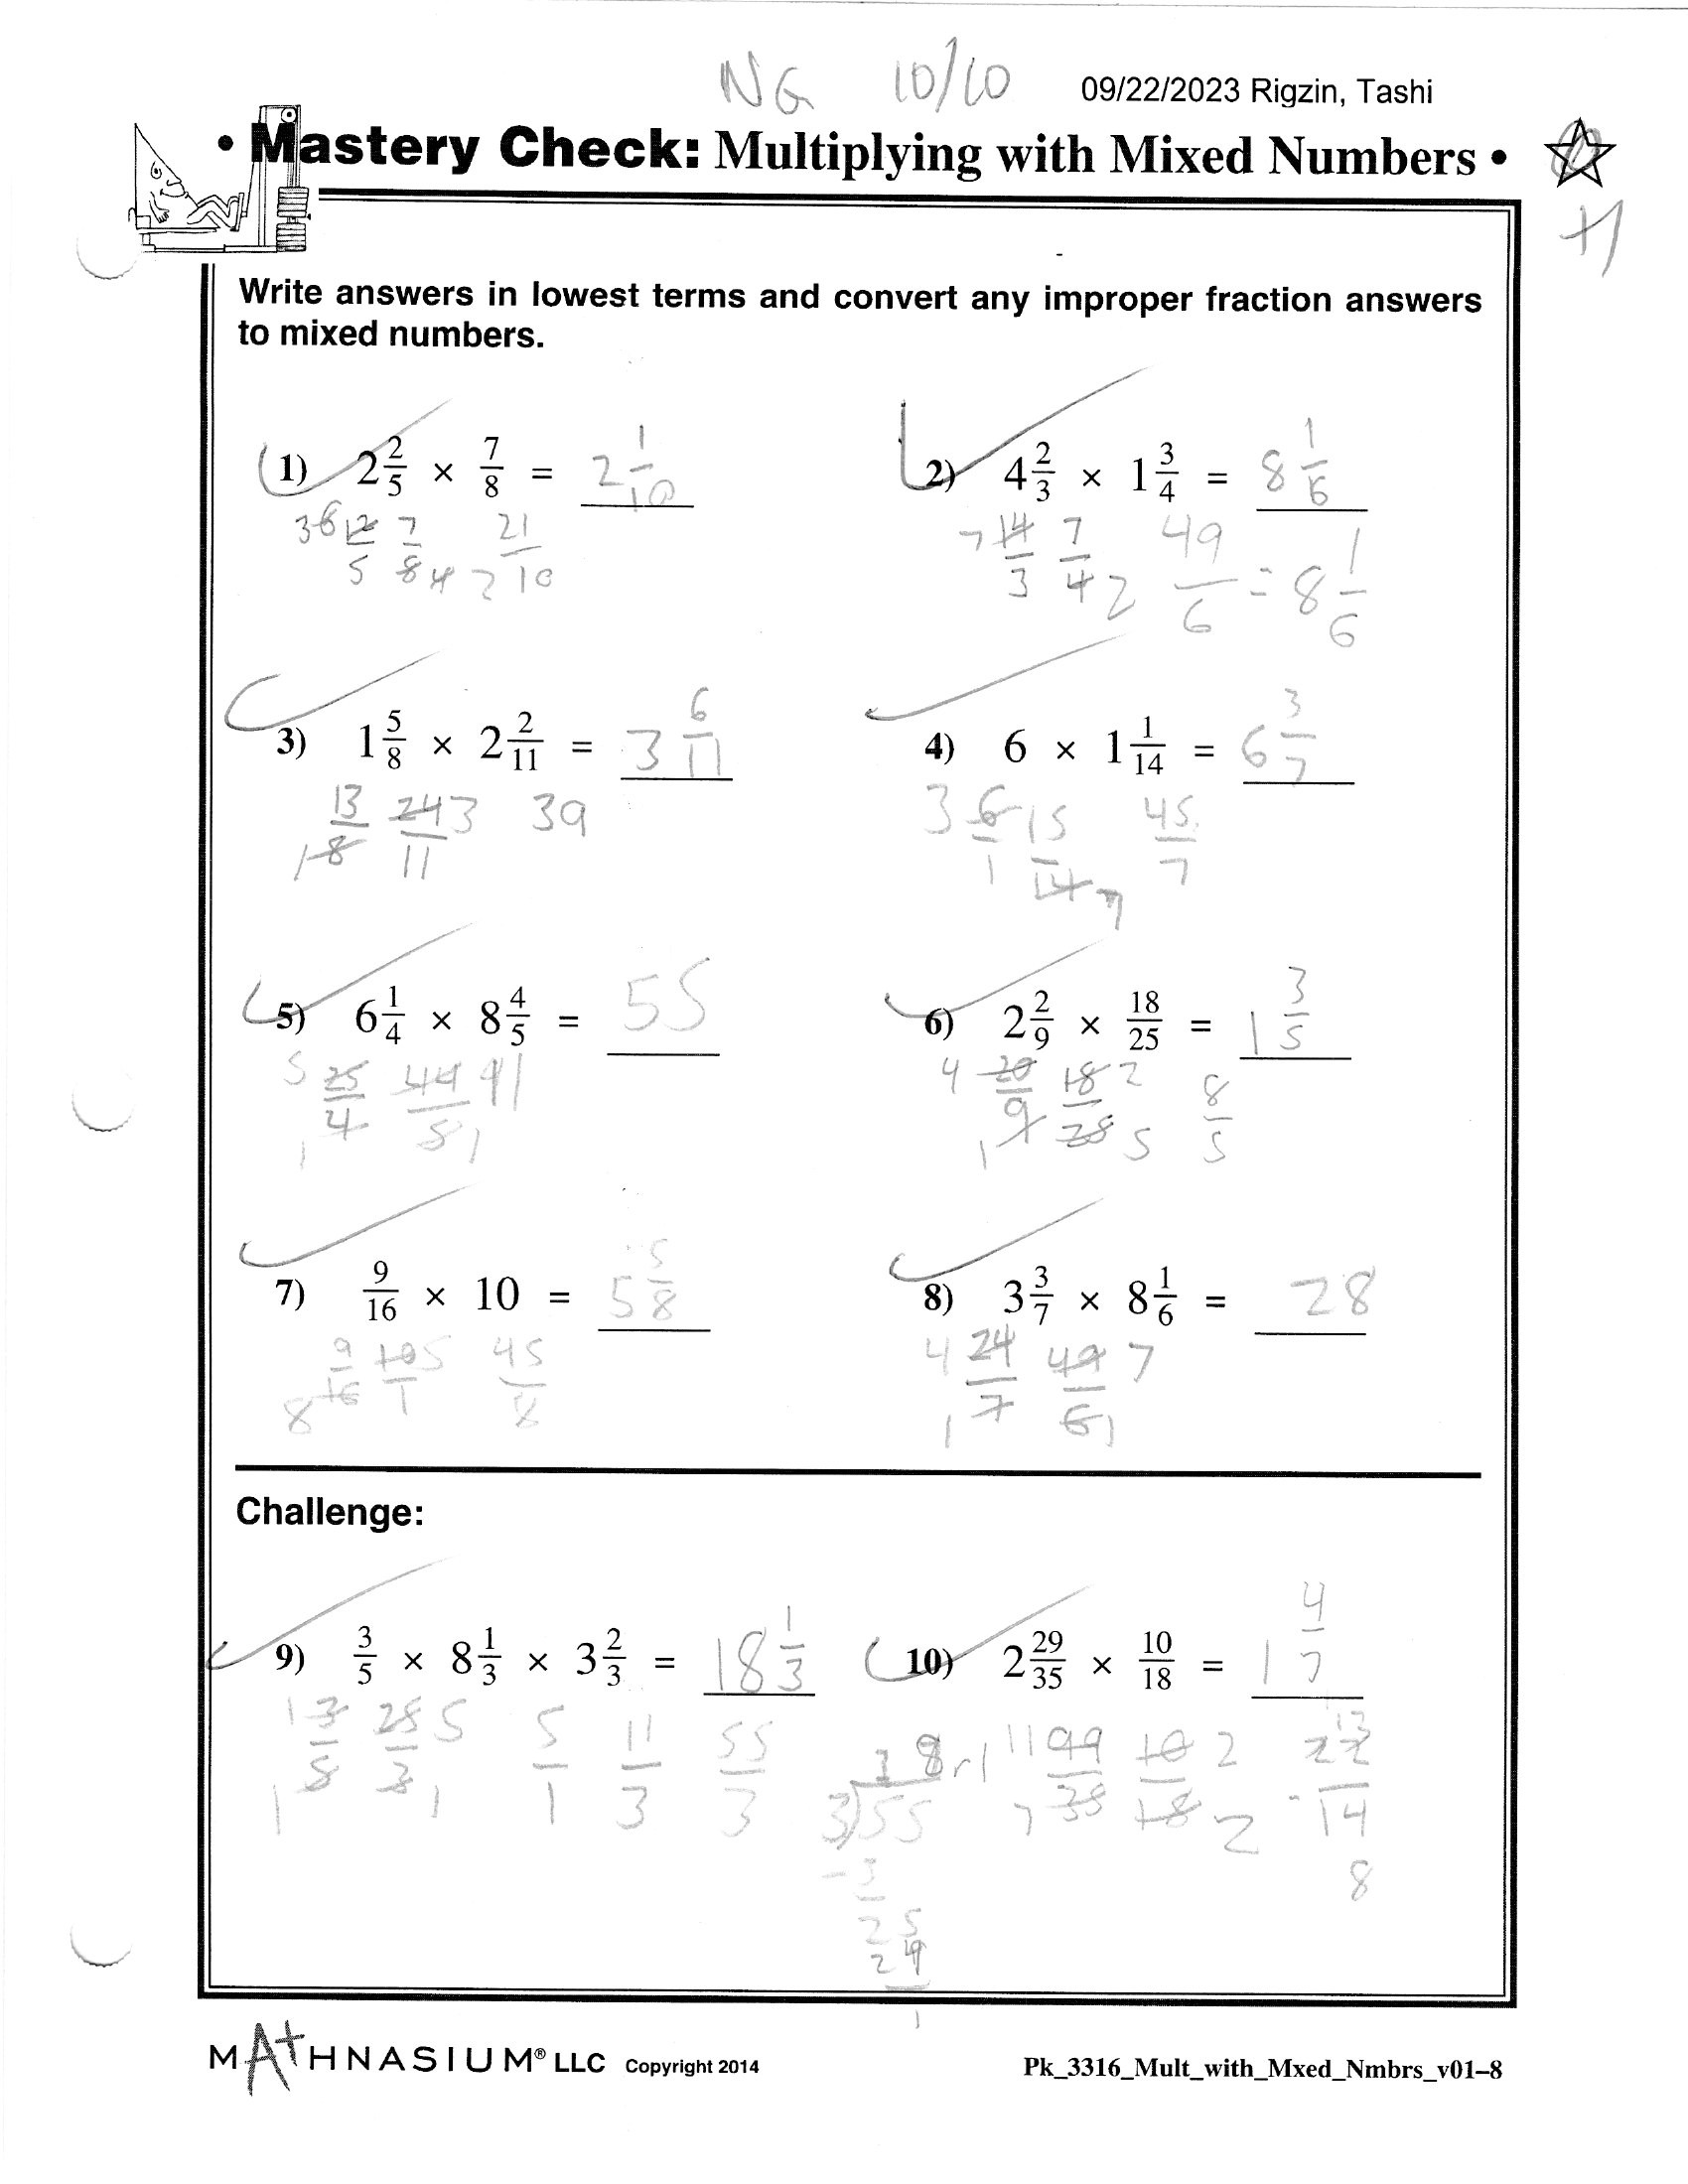 NG 10/10 09/22/2023 Rigzin, Tashi
• Mastery Check: Multiplying with Mixed Numbers •
+1
Write answers in lowest terms and convert any improper fraction answers
to mixed numbers.
1) 2 2/5 × 7/8 = 2 1/10
3 6 12/5 7/8 4 2 21/10
2) 4 2/3 × 1 3/4 = 8 1/6
7 14/3 7/4 2 49/6 = 8 1/6
3) 1 5/8 × 2 2/11 = 3 6/11
13/8 1 24/11 3 39
4) 6 × 1 1/14 = 6 3/7
3 6/1 15/14 7 45/7
5) 6 1/4 × 8 4/5 = 55
5 25/4 1 44/5 11 1
6) 2 2/9 × 18/25 = 1 3/5
4 20/9 1 18/25 2 5 8/5
7) 9/16 × 10 = 5 5/8
9/16 8 10/1 5 45/8
8) 3 3/7 × 8 1/6 = 28
4 24/7 1 49/6 7 1
Challenge:
9) 3/5 × 8 1/3 × 3 2/3 = 18 1/3
1 3/5 1 25/3 5 1 5/1 11/3 55/3
18 r1
3)55
-3
25
24
1
10) 2 29/35 × 10/18 = 1 4/7
11 99/35 7 10/18 2 2 22/14
8
MATHNASIUM® LLC Copyright 2014
Pk_3316_Mult_with_Mxed_Nmbrs_v01–8